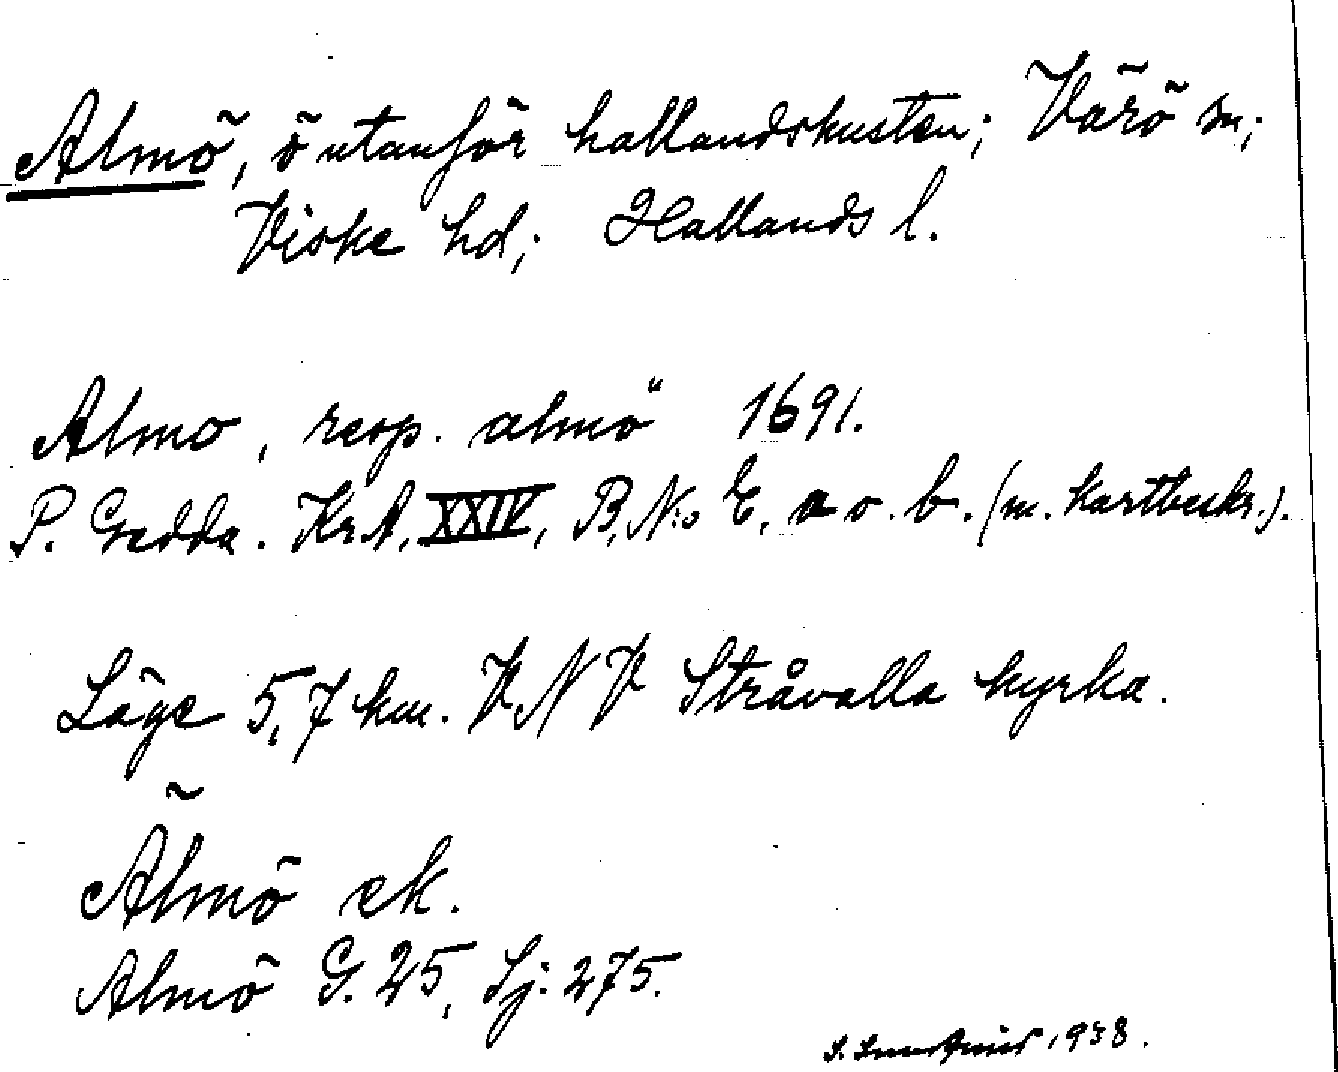 Almö, ö utanför hallandskusten; Värö sn;
Viske hd; Hallands l.
Almo, resp. almö 1691.
P. Gedda. Kr.A. XXIV, B, N:o E, a o. b. (m. kartbeskr.).
Läge 5,7 km. VNV Stråvalla kyrka.
Älmö ek.
Almö G. 25, Sj. 275.
1938.